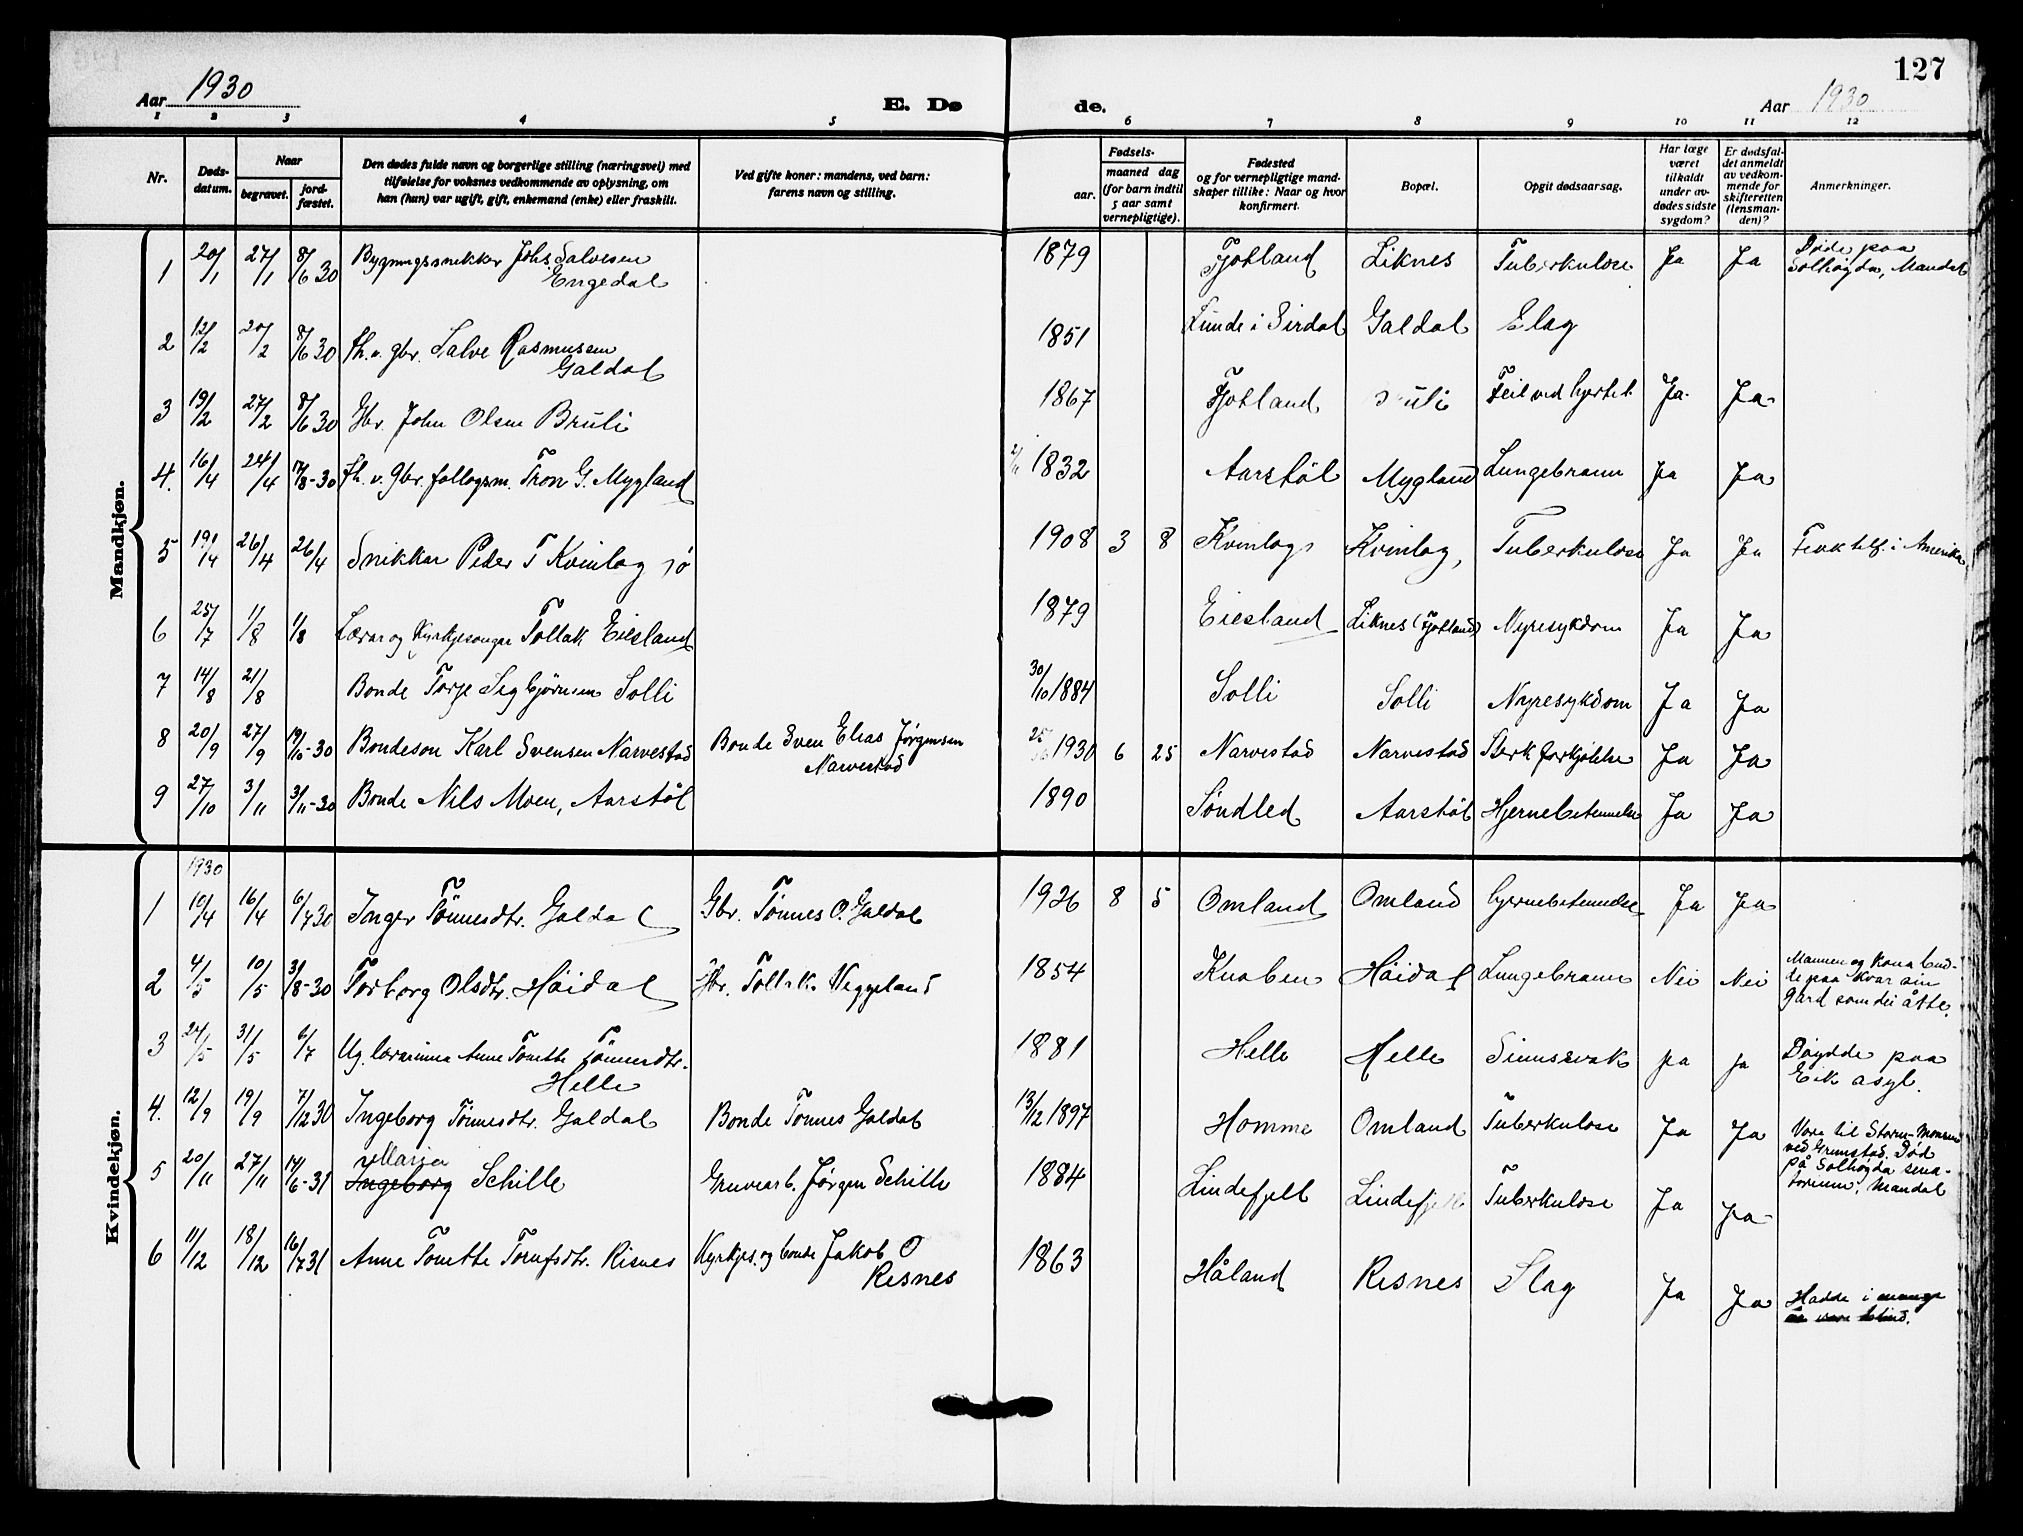 127
Aar 1930
E. Dø
de.
Aar 1930
1 2 3 4 5 6 7 8 9 10 11 12
Nr.
Døds-
datum.
Naar
begravet.
jord-
fæstet.
Den dødes fulde navn og borgerlige stilling (næringsvei) med
tilføielse for voksnes vedkommende av oplysning, om
han (hun) var ugift, gift, enkemand (enke) eller fraskilt.
Ved gifte koner: mandens, ved barn:
farens navn og stilling.
Fødsels-
aar.
maaned dag
(for barn indtil
5 aar samt
vernepligtige).
Fødested
og for vernepligtige mand-
skaper tillike: Naar og hvor
konfirmert.
Bopæl.
Opgit dødsaarsag.
Har læge
været
tilkaldt
under av-
dødes sidste
sygdom?
Er dødsfal-
det anmeldt
av vedkom-
mende for
skifteretten
(lensman-
den)?
Anmerkninger.
Mandkjøn.
1 20/1 27/1 8/6 30 Bygningssnikker Johs Salvesen
Engedal
1879 Fjotland Liknes Tuberkulose Ja Ja Døde paa
Solhøgda, Mandal
2 12/2 20/2 8/6 30 fh. v. gbr. Salve Rasmusen
Galdal
1851 Lunde i Sirdal Galdal Slag
3 19/2 27/2 8/6 30 Gbr. John Olsen Bruli 1867 Fjotland Feil ved hjertet Ja Ja
4. 16/4 24/4 17/8-30 fh. v. gbr. Tron G. Mygland 1832 Aarstøl Mygland Lungebrann Ja Ja
5 19/4 26/4 26/4 Snikkar Peder T Kvinlog 1908 3 8 Kvinlog Kvinlog, Tuberkulose Ja Ja Fekk tilf. i Amerika.
6 25/7 1/8 1/8 Lærar og kyrkjesongar Tollak Eiesland 1879 Eiesland Liknes (Fjotland) Nyresykdom Ja Ja
7 14/8 21/8 Bonde Torje Sigbjørnsen Solli 30/10 1884 Solli Solli Nyresykdom Ja Ja
8 20/9 27/9 19/10-30 Bondeson Karl Svensen Narvestad Bonde Sven Elias Jørgensen
Narvestad
1930 6 25 Narvestad Narvestad Sterk forkjølelse Ja Ja
9 27/10 3/11 3/11-30 Bonde Nils Moen, Aarstøl 1890 Søndled Aarstøl Hjernebetennelse Ja Ja
Kvindekjøn.
1930
1 10/4 16/4 6/7 30 Inger Tønnesdtr. Galdal Gbr. Tønnes O. Galdal 1926 8 5 Omland Omland hjernebetennelse Ja Ja
2 4/5 10/5 31/8-30 Torborg Olsdtr. Høidal Gbr. Tollak Veggeland 1854 Knaben Høidal Lungebrann Nei Nei Mannen og kona bud-
de paa kvar sin
gard som dei åtte.
3 24/5 31/5 6/7 Ug. lærarinna Anne Tonette Tønnesdtr.
Helle
1881 Helle Helle Sinnssvak Ja Ja Døydde paa
Eik asyl.
4. 12/9 19/9 7/12 30 Ingeborg Tønnesdtr. Galdal Bonde Tønnes Galdal 13/12 1897 Homme Omland Tuberkulose Ja Ja
5 20/11 27/11 14/6-31 Marja
Ingeborg Schille Gruvearb. Jørgen Schille 1884 Lindefjell Lindefjell Tuberkulose Ja Ja Vore til
ved Grimstad. Død
på Solhøgda sena-
torium, Mandal
6 11/12 18/12 16/7 31 Anne Tonette Torufsdtr. Risnes Kyrkjes. og bonde Jakob O
Risnes
1863 Håland Risnes Slag Ja Ja Hadde i mange
år vore blind.